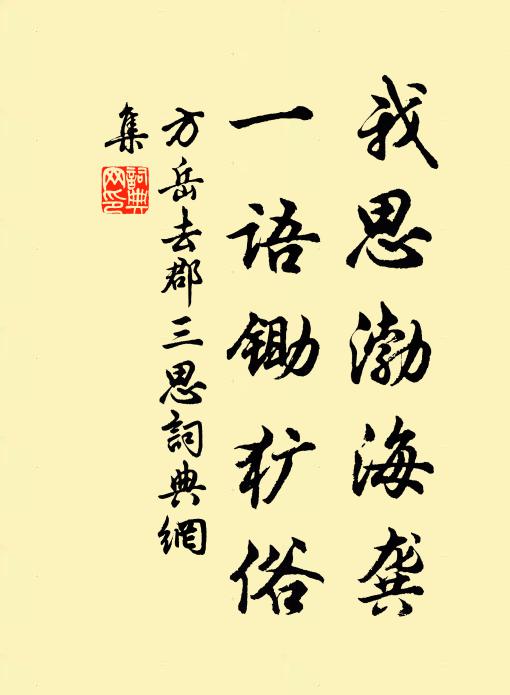 我思渤海龚
一语锄犷俗
方岳去郡三思詞典網
集
詞典網印